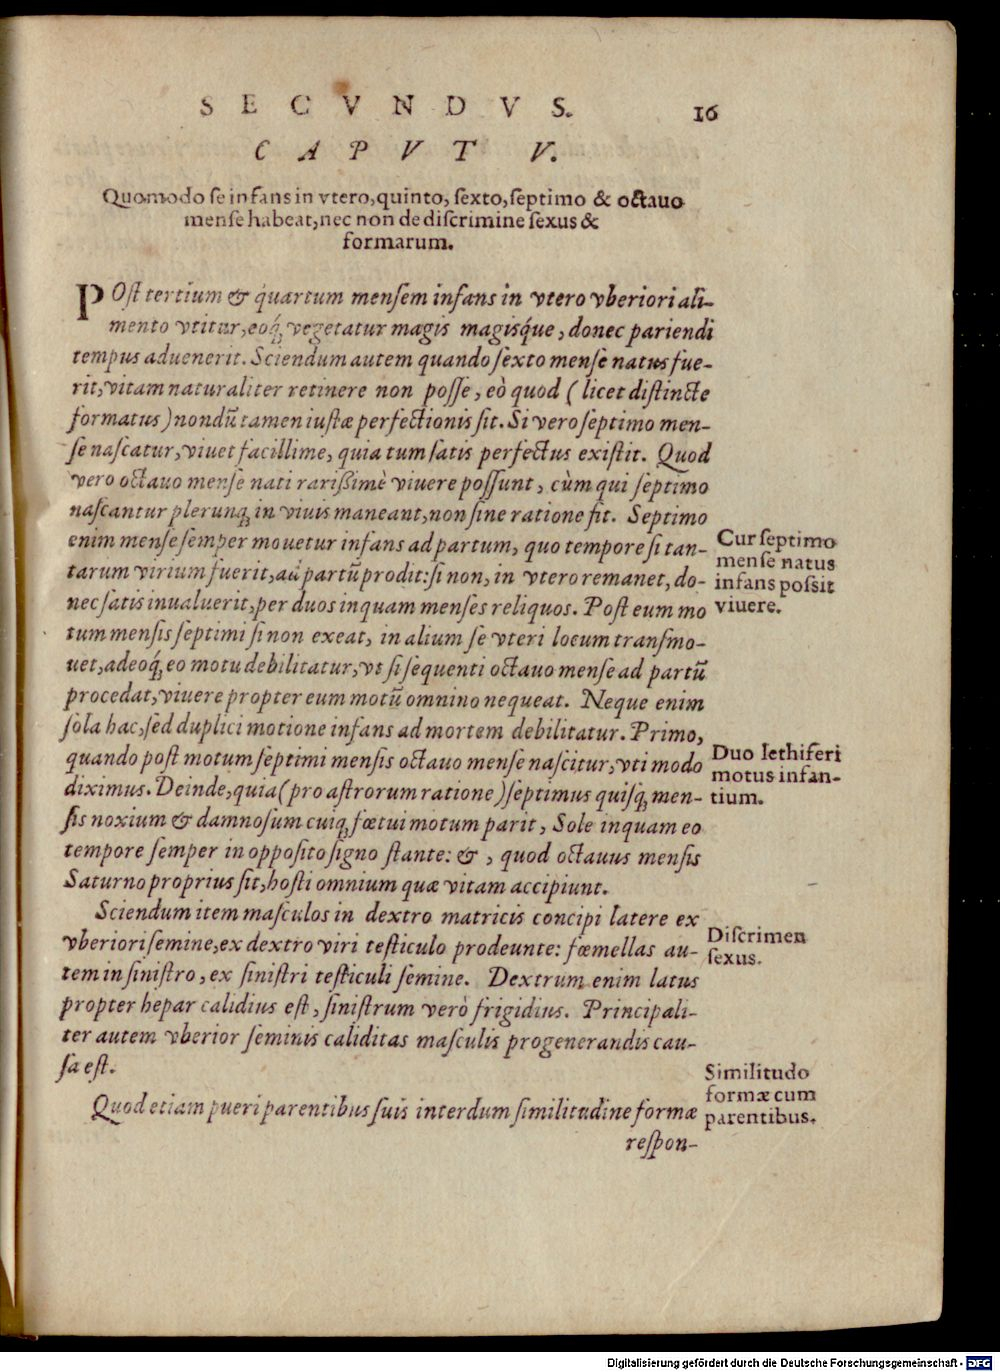 SECVNDVS. 16
CAPVT V.
Quomodo se infans in vtero, quinto, sexto, septimo & octauo
mense habeat, nec non de discrimine sexus &
formarum.
POst tertium & quartum mensem infans in vtero vberiori ali-
mento vtitur, eoq́ꝫ vegetatur magis magisq́ue, donec pariendi
tempus aduenerit. Sciendum autem quando sexto mense natus fue-
rit, vitam naturaliter retinere non posse, eò quod (licet distincte
formatus) nondũ tamen iustæ perfectionis sit. Si vero septimo men-
se nascatur, viuet facillime, quia tum satis perfectus existit. Quod
vero octauo mense nati rarißimè viuere possunt, cùm qui septimo
nascantur plerunqꝫ in viuis maneant, non sine ratione fit. Septimo
enim mense semper mouetur infans ad partum, quo tempore si tan-
tarum virium fuerit, ad partũ prodit: si non, in vtero remanet, do-
nec satis inualuerit, per duos inquam menses reliquos. Post eum mo
tum mensis septimi si non exeat, in alium se vteri locum transmo-
uet, adeoq́ꝫ eo motu debilitatur, vt si sequenti octauo mense ad partũ
procedat, viuere propter eum motũ omnino nequeat. Neque enim
sola hac, sed duplici motione infans ad mortem debilitatur. Primo,
quando post motum septimi mensis octauo mense nascitur, vti modo
diximus. Deinde, quia (pro astrorum ratione) septimus quisqꝫ men-
sis noxium & damnosum cuiqꝫ fœtui motum parit, Sole inquam eo
tempore semper in opposito signo stante: &, quod octauus mensis
Saturno proprius sit, hosti omnium quæ vitam accipiunt.
Sciendum item masculos in dextro matricis concipi latere ex
vberiori semine, ex dextro viri testiculo prodeunte: fœmellas au-
tem in sinistro, ex sinistri testiculi semine. Dextrum enim latus
propter hepar calidius est, sinistrum verò frigidius. Principali-
ter autem vberior seminis caliditas masculis progenerandis cau-
sa est.
Quod etiam pueri parentibus suis interdum similitudine formæ
respon-
Cur septimo
mense natus
infans possit
viuere.
Duo lethiferi
motus infan-
tium.
Discrimen
sexus.
Similitudo
formæ cum
parentibus.
Digitalisierung gefördert durch die Deutsche Forschungsgemeinschaft - DFG